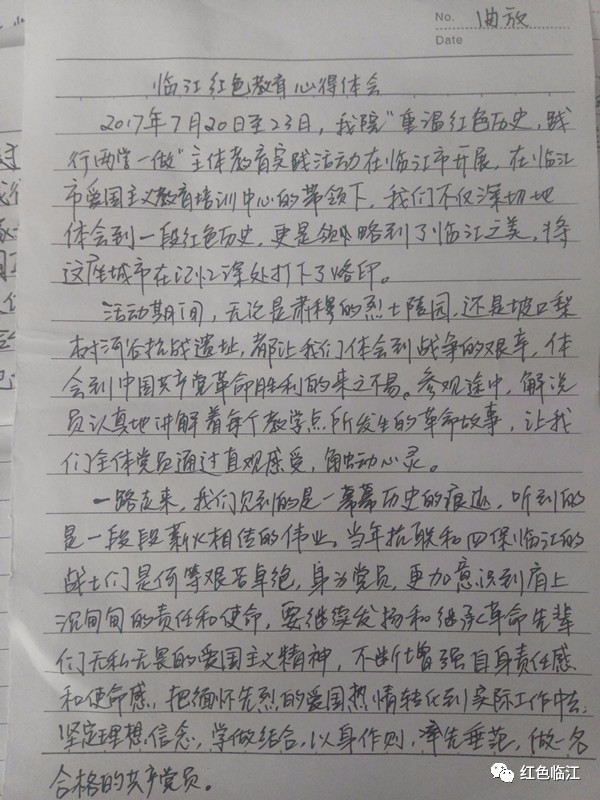 No. 曲放
Date
临江红色教育心得体会
2017年7月20日至23日，我院“重温红色历史，践
行两学一做”主体教育实践活动在临江市开展，在临江
市爱国主义教育培训中心的带领下，我们不仅深切地
体会到一段红色历史，更是领略到了临江之美，将
这座城市在记忆深处打下了烙印。
活动期间，无论是肃穆的烈士陵园，还是坡口梨
树河谷抗战遗址，都让我们体会到战争的艰辛，体
会到中国共产党革命胜利的来之不易。参观途中，解说
员认真地讲解着每个教学点所发生的革命故事，让我
们全体党员通过直观感受，触动心灵。
一路走来，我们见到的是一幕幕历史的痕迹，听到的
是一段段薪火相传的伟业。当年抗联和四保临江的
战士们是何等艰苦卓绝，身为党员，更加意识到肩上
沉甸甸的责任和使命，要继续发扬和继承革命先辈
们无私无畏的爱国主义精神，不断增强自身责任感
和使命感，把缅怀先烈的爱国热情转化到实际工作中去，
坚定理想信念，学做结合，以身作则，率先垂范，做一名
合格的共产党员。
红色临江